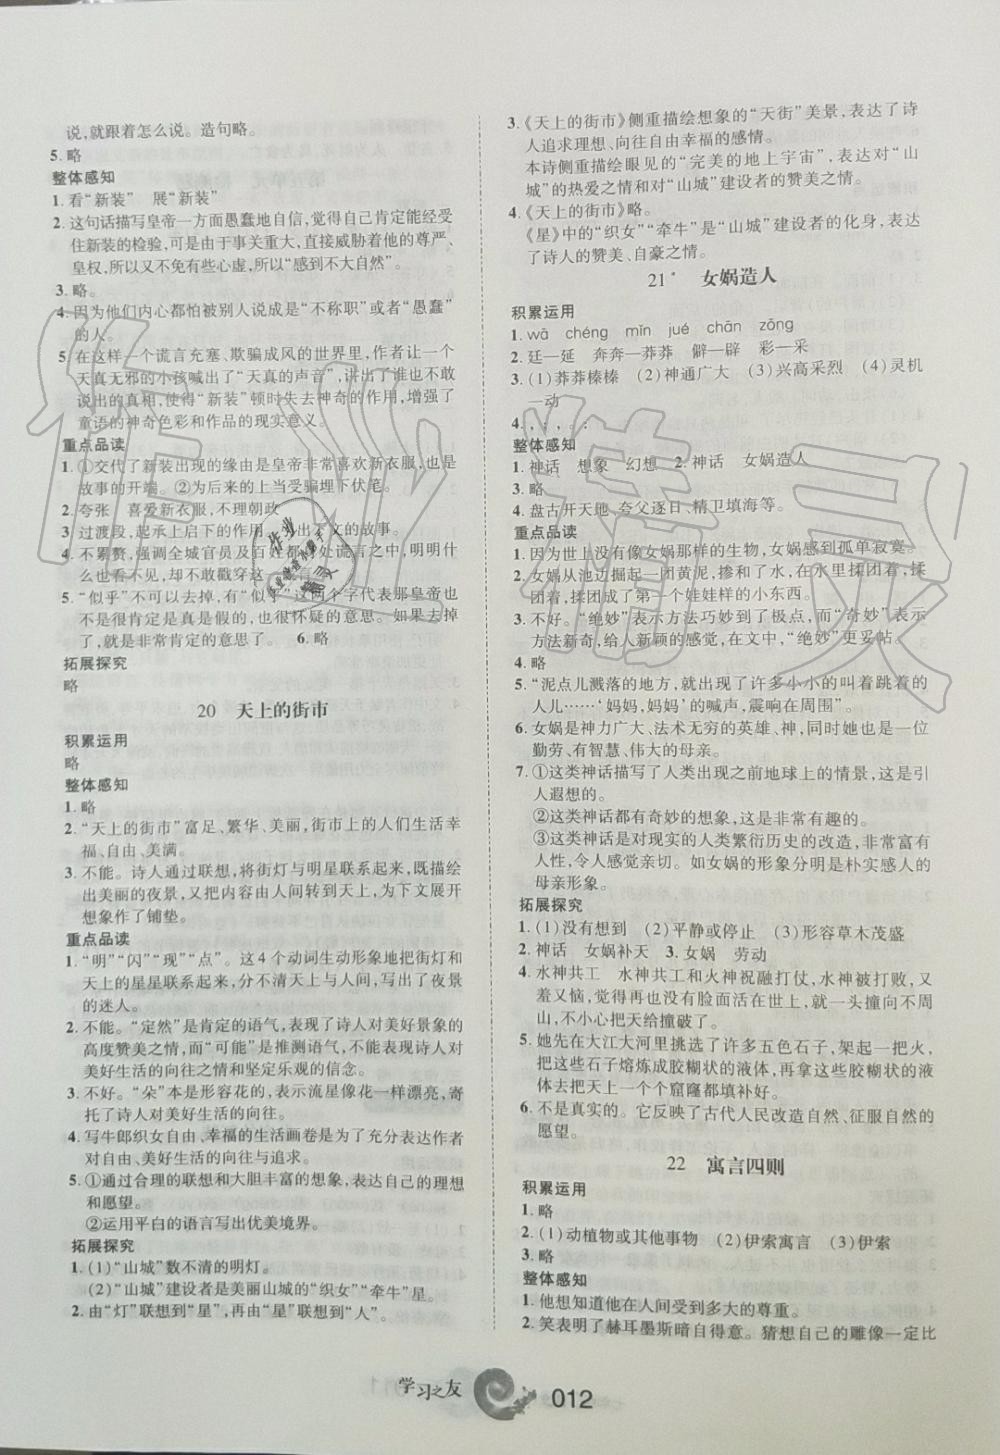 说,就跟着怎么说。造句略。
5. 略
整体感知
1. 看“新装” 展“新装”
2. 这句话描写皇帝一方面愚蠢地自信,觉得自己肯定能经受
住新装的检验,可是由于事关重大,直接威胁着他的尊严、
皇权,所以又不免有些心虚,所以“感到不大自然”。
3. 略。
4. 因为他们内心都怕被别人说成是“不称职”或者“愚蠢”
的人。
5. 在这样一个谎言充塞、欺骗成风的世界里,作者让一个
天真无邪的小孩喊出了“天真的声音”,讲出了人们不敢
说出的真相,使得“新装”顿时失去神奇的作用,增强了
童话的神奇色彩和作品的现实意义。
重点品读
1. ①交代了新装出现的缘由是皇帝非常喜欢新衣服,也是
故事的开端。②为后来的上当受骗埋下伏笔。
2. 夸张 喜爱新衣服,不理朝政
3. 过渡段,起承上启下的作用,出下文的故事。
4. 不累赘,强调全城官员及百姓都处谎言之中,明明什
么也看不见,却不敢戳穿这言
5. “似乎”不可以去掉,有“似乎”这两个字代表那皇帝也
不是很肯定是真是假的,也很怀疑的意思。如果去掉
了,就是非常肯定的意思了。 6. 略
拓展探究
略
20 天上的街市
积累运用
略
整体感知
1. 略
2. “天上的街市”富足、繁华、美丽,街市上的人们生活幸
福、自由、美满。
3. 不能。诗人通过联想,将街灯与明星联系起来,既描绘
出美丽的夜景,又把内容由人间转到天上,为下文展开
想象作了铺垫。
重点品读
1. “明”“闪”“现”“点”。这4个动词生动形象地把街灯和
天上的星星联系起来,分不清天上与人间,写出了夜景
的迷人。
2. 不能。“定然”是肯定的语气,表现了诗人对美好景象的
高度赞美之情,而“可能”是推测语气,不能表现诗人对
美好生活的向往之情和坚定乐观的信念。
3. 不好。“朵”本是形容花的,表示流星像花一样漂亮,寄
托了诗人对美好生活的向往。
4. 写牛郎织女自由、幸福的生活画卷是为了充分表达作者
对自由、美好生活的向往与追求。
5. ①通过合理的联想和大胆丰富的想象,表达自己的理想
和愿望。
②运用平白的语言写出优美境界。
拓展探究
1. (1)“山城”数不清的明灯。
(2)“山城”建设者是美丽山城的“织女”“牵牛”星。
2. 由“灯”联想到“星”,再由“星”联想到“人”。
3. 《天上的街市》侧重描绘想象的“天街”美景,表达了诗
人追求理想、向往自由幸福的感情。
本诗侧重描绘眼见的“完美的地上宇宙”,表达对“山
城”的热爱之情和对“山城”建设者的赞美之情。
4. 《天上的街市》略。
《星》中的“织女”“牵牛”是“山城”建设者的化身,表达
了诗人的赞美、自豪之情。
21* 女娲造人
积累运用
1. wā chéng mǐn jué chān zōng
2. 廷—延 奔奔—莽莽 僻—辟 彩—采
3. (1)莽莽榛榛 (2)神通广大 (3)兴高采烈 (4)灵机
一动
4. , , , 。 :
整体感知
1. 神话 想象 幻想 2. 神话 女娲造人
3. 略
4. 盘古开天辟地、夸父逐日、精卫填海等。
重点品读
1. 因为世上没有像女娲那样的生物,女娲感到孤单寂寞。
2. 女娲从池边掘起一团黄泥,掺和了水,在水里揉团着,
揉团着,揉团成了第一个娃娃样的小东西。
3. 不好。“绝妙”表示方法巧妙到了极点,而“奇妙”表示
方法新奇,给人新颖的感觉,在文中,“绝妙”更妥帖。
4. 略
5. “泥点儿溅落的地方,就出现了许多小小的叫着跳着的
人儿……‘妈妈,妈妈’的喊声,震响在周围”。
6. 女娲是神力广大、法术无穷的英雄、神,同时她也是一位
勤劳、有智慧、伟大的母亲。
7. ①这类神话描写了人类出现之前地球上的情景,这是引
人遐想的。
②这类神话都有奇妙的想象,这是非常有趣的。
③这类神话是对现实的人类繁衍历史的改造,非常富有
人性,令人感觉亲切。如女娲的形象分明是朴实感人的
母亲形象。
拓展探究
1. (1)没有想到 (2)平静或停止 (3)形容草木茂盛
2. 神话 女娲补天 3. 女娲 劳动
4. 水神共工 水神共工和火神祝融打仗,水神被打败,又
羞又恼,觉得再也没有脸面活在世上,就一头撞向不周
山,不小心把天给撞破了。
5. 她先在大江大河里挑选了许多五色石子,架起一把火,
把这些石子熔炼成胶糊状的液体,再拿这些胶糊状的液
体去把天上一个个窟窿都填补好。
6. 不是真实的。它反映了古代人民改造自然、征服自然的
愿望。
22 寓言四则
积累运用
1. 略
2. (1)动植物或其他事物 (2)伊索寓言 (3)伊索
3. 略
整体感知
1. 他想知道他在人间受到多大的尊重。
2. 笑表明了赫耳墨斯暗自得意。猜想自己的雕像一定比
学习之友
012
作业精灵